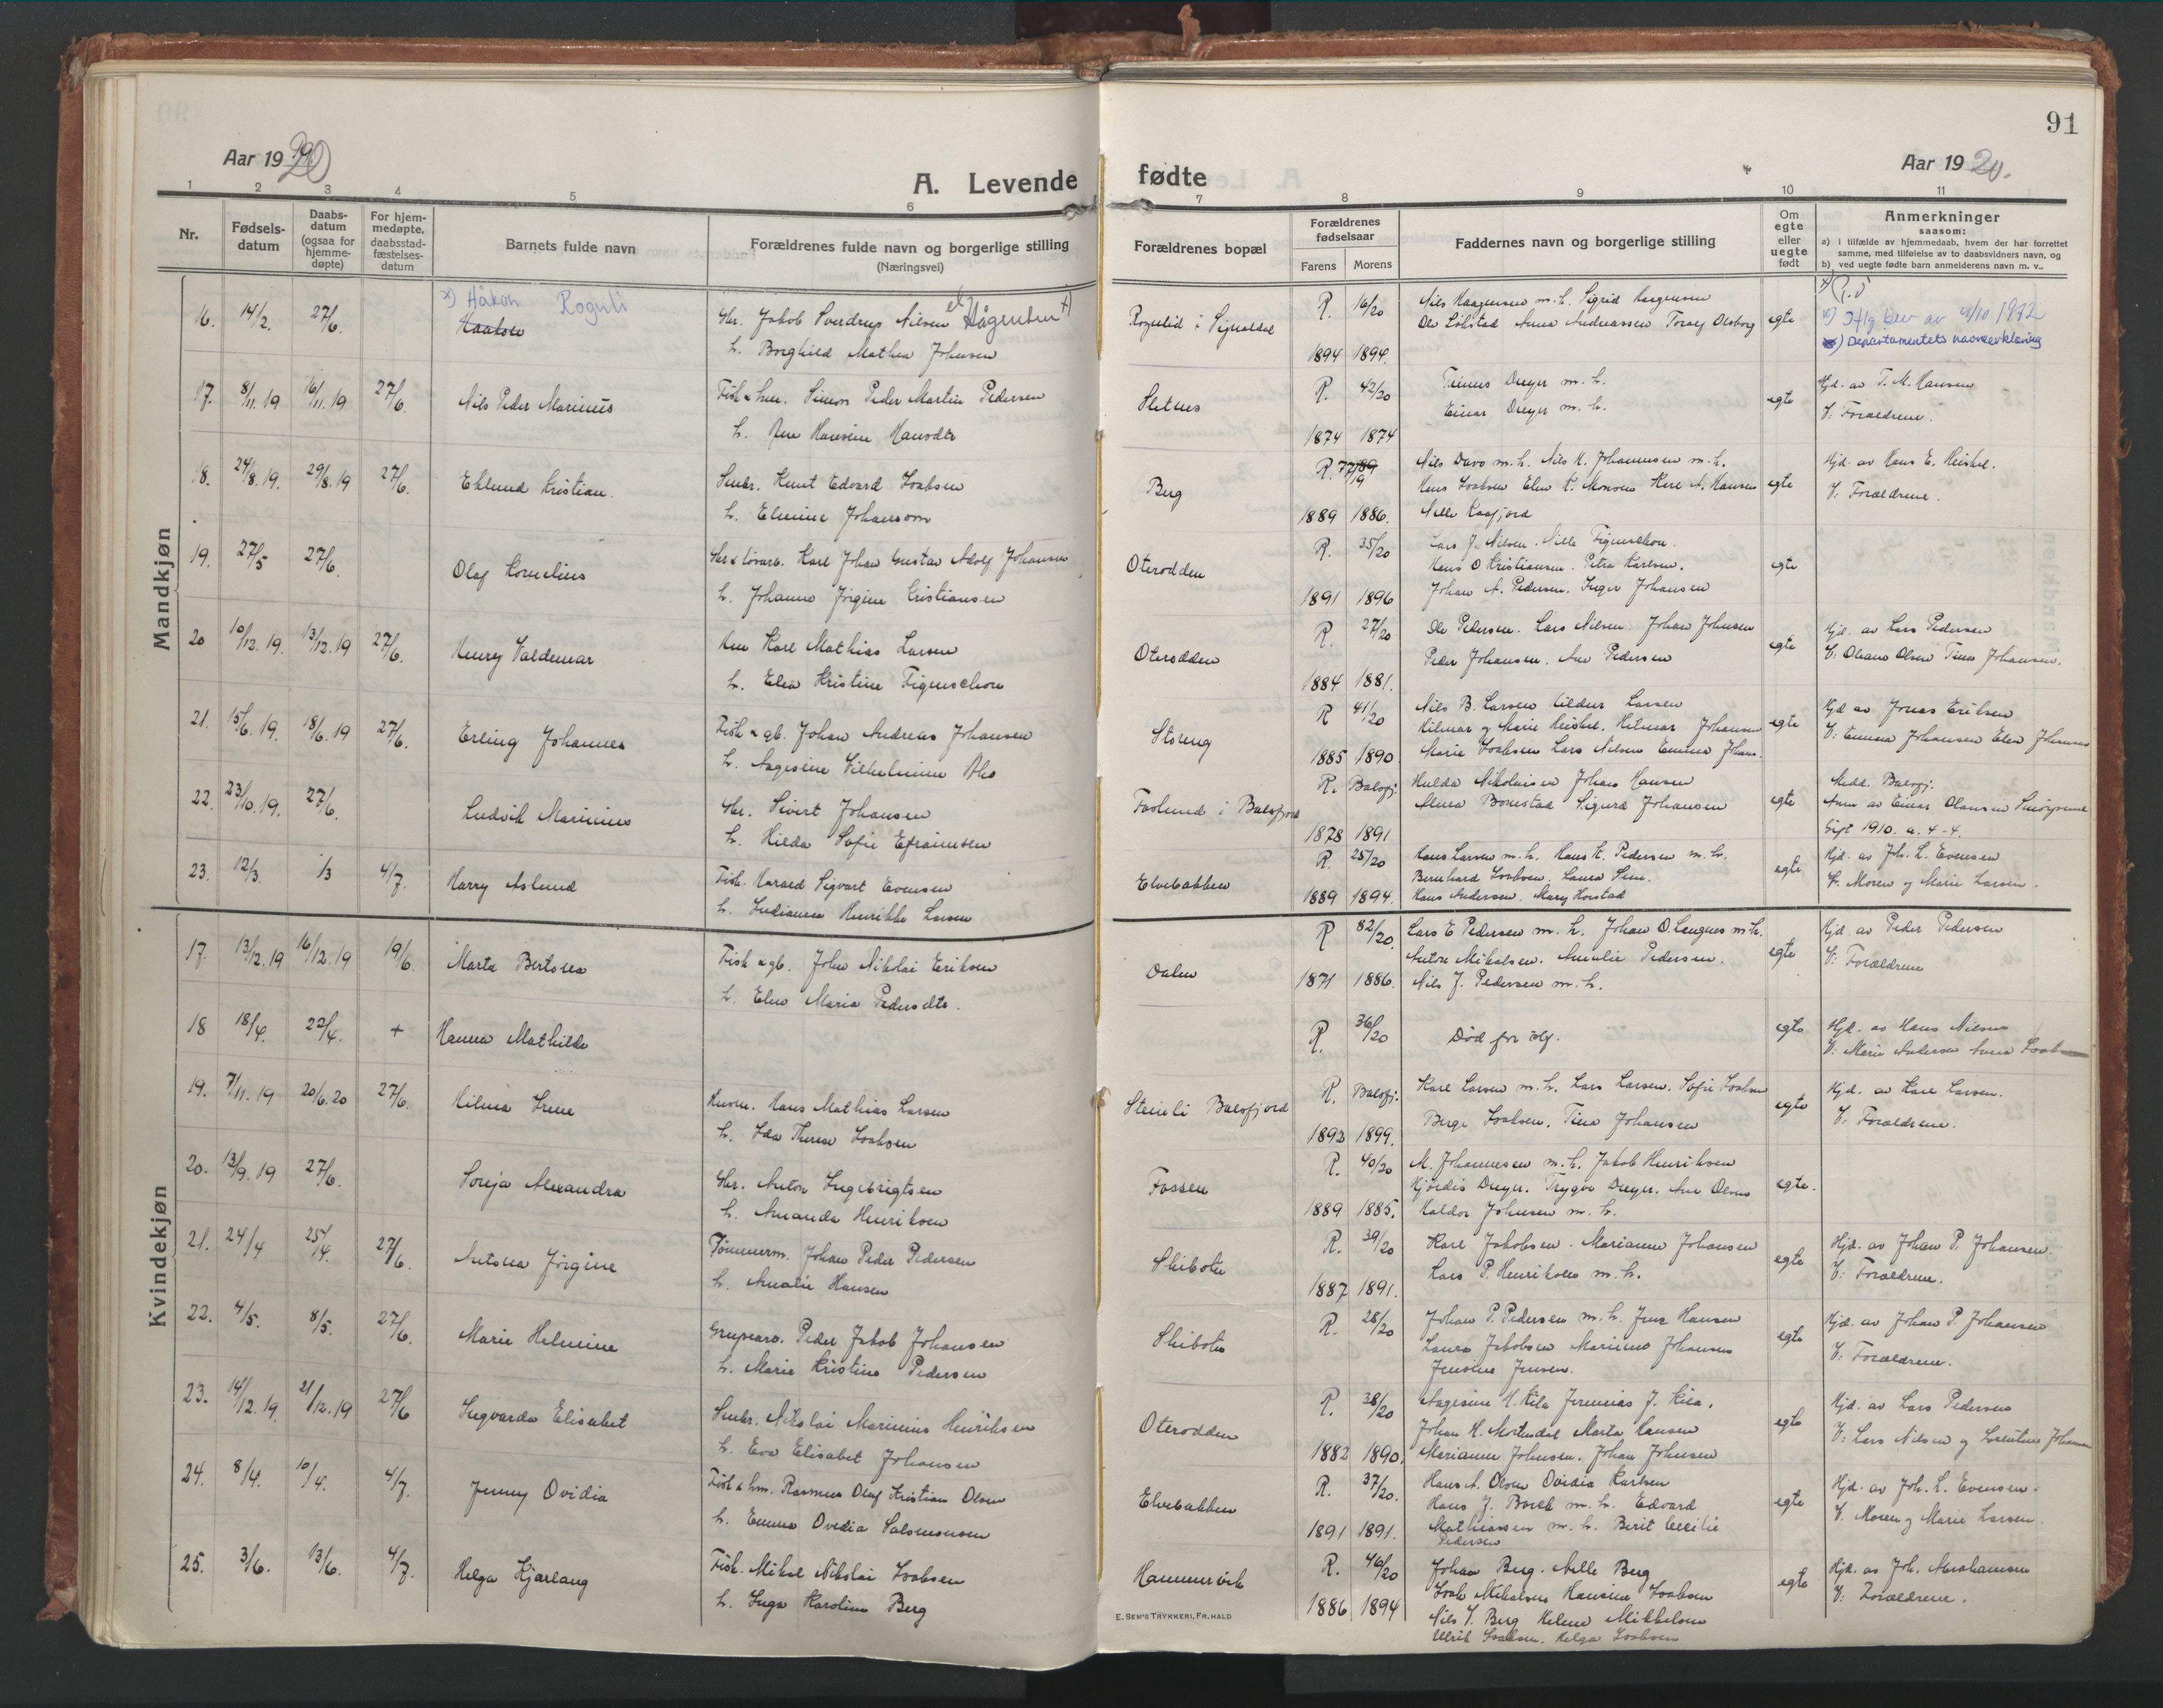 91
Aar 1920
A. Levende fødte
Aar 1920.
1 2 3 4 5 6 7 8 9 10 11
Nr.
Fødsels-
datum
Daabs-
datum
(ogsaa for
hjemme-
døpte)
For hjem-
medøpte,
daabsstad-
fæstelses-
datum
Barnets fulde navn
Forældrenes fulde navn og borgerlige stilling
(Næringsvei)
Forældrenes bopæl
Forældrenes
fødselsaar
Farens Morens
Faddernes navn og borgerlige stilling
Om
egte
eller
uegte
født
Anmerkninger
saasom:
a) i tilfælde av hjemmedaab, hvem der har forrettet
samme, med tilføielse av to daabsvidners navn, og
b) ved uegte fødte barn anmelderens navn m. v..
Mandkjøn
16. 14/2. 27/6.
x) Håkon Roguli
Haakon
Gbr. Jakob Sverdrup Nilsen Hågensen
h. Borghild Mathea Johnsen
Rognlid i Signaldal
R. 16/20
1894 1894.
Nils Haagensen m. h. Sigrid Haagensen
Anna Andreassen
egte
av 4/10 1932
Departamentets navneerklæring
17. 8/11.19 16/11.19 27/6.
Nils Peder Marinus
Fisk & hm. Simon Peder Martin Pedersen
h. Ane Hansine Hansdtr
Sletnes
R. 42/20
1874 1874
Dreyer m. h.
Einar Dreyer m. h.
egte
Hjd. av T. M. Hansen
V: Forældrene.
18. 24/8.19. 29/8.19 27/6.
Eklund Kristian.
Smbr. Knut Edvard Isaksen
h. Elmine Johansom
Berg
R. 77/19
1889 1886.
Nils Davo m. h. Nils K. Johannesen m. h.
Hans Isaksen Elen K. Monsen Karl A. Hansen
Nelle Kaafjord
egte
Hjd. av Hans E. Heiskel.
V: Forældrene.
19. 27/5 27/6.
Olaf Kornelius
Gbr & løsarb. Karl Johan Gustav Adolf Johansen
h. Johanna Jørgine Kristiansen
Oterodden
R. 35/20
1891 1896
Lars J. Nilsen. Nille Figenschou.
Hans O Kristiansen. Petra Karlsen.
Johan A. Pedersen. Inger Johansen
egte
20 10/12.19. 13/12.19 27/6.
Henry Valdemar
Karl Mathias Larsen
h. Elen Kristine Figenschou
Oterodden
R. 27/20
1884 1881.
Ole Pedersen. Lars Nilsen. Johan Johnsen
Peder Johansen. Ane Pedersen
egte
Hjd. av Lars Pedersen
V: Oleana Olsen Tina Johansen.
21. 15/6.19. 18/6.19 27/6.
Erling Johannes
Fisk & gb. Johan Andreas Johansen
h. Aagesine Vilhelmine
Storeng
R 41/20
1885 1890
Nils B. Larsen Larsen
Hilmar og Marie Heiskel. Hilmar Johansen
Marie Isaksen Lars Nilsen Emma Johans.
egte
Hjd av Jonas Eriksen
V: Emma Johansen Elen Johansen
22. 23/10.19. 27/6.
Ludvik Marinius
Gbr. Sivert Johansen
h. Hilda Sofie Efraimsen
i Balsfjord
R. Balsfj.
1878 1891
Hulda Nikolaisen Johan Hansen
Bonstad Sigurd Johansen
egte
Medd. Balsfj.
Anm av Einar Olausen
Gift 1910. a. 4-4.
23. 12/3. 1/3 4/7.
Harry Aslund
Fisk. Harald Sigvart Evensen
h. Indianna Henrikke Larsen
Elvebakken
R. 25/20
1889 1894.
Hans Larsen m. h. Hans K. Pedersen m. h.
Bernhard Isaksen. Laura
Hans Andersen. Mary Horstad
egte
Hjd. av Joh. L. Evensen
V. Moren og Marie Larsen.
Kvindekjøn
17. 13/12.19 16/12.19 19/6.
Marta Bertora
Fisk & gb. John Nikolai Eriksen
h. Elen Maria Pedersdtr.
Dalen
R 82/20.
1871 1886.
Lars E Pedersen m. h. Johan O. Langnes m. h.
Anton Mikalsen. Amalie Pedersen.
Nils J. Pedersen m. h.
egte
Hjd. av Peder Pedersen
V: Forældrene
18 18/4. 22/4. +
Hanna Mathilde
R. 36/20
Død
egte
Hjd. av Hans Nilsen
V: Marie Andersen Anna Isaksen
19. 7/11.19 20/6.20 27/6.
Hilma Irene
Hans Mathias Larsen
h. Ida Therese Isaksen
Steinli Balsfjord
R. Balsfj.
1892 1899.
Karl Larsen m. h. Lars Larsen. Sofie Isaksen
Berge Isaksen. Tina Johansen
egte
Hjd. av Karl Larsen.
V. Forældrene.
20. 13/9.19 27/6.
Sonja Alexandra
Gbr. Anton Ingebrigtsen
h. Amanda Henriksen
Fossen
R. 40/20
1889 1885.
M. Johannesen m. h. Jakob Henriksen
Hjørdis Dreyer. Trygve Dreyer. Ane Olsen
Haldor Johnsen m. h.
egte.
21. 24/4 25/4. 27/6.
Antora Jørgine
Tømmerm. Johan Peder Pedersen
h. Amalie Hansen
Skibotn
R. 39/20
1887 1891.
Karl Jakobsen. Marianne Johansen
Lars P. Henriksen m. h.
egte
Hjd. av Johan P. Johansen.
V: Forældrene.
22. 4/5. 8/5. 27/6.
Marie Helmine
Grupearb. Peder Jakob Johansen
h. Marie Kristine Pedersen
Skibotn
R. 28/20
Johan P. Pedersen m. h. Jens Hansen
Laura Jakobsen Johansen
Jensine Jensen.
egte
Hjd. av Johan P. Johansen
V: Forældrene.
23. 14/12.19. 21/12.19 27/6
Ingvarda Elisabet
Smbr. Nikolai Marinius Henriksen
h. Eva Elisabet Johansen
Oterodden
R. 38/20
1882 1890.
Aagesine H. Kiil Jeremias J. Kiil.
Johan H. Mortendal Marta Hansen
Marianne Johnsen. Johan Johnsen
egte
Hjd. av Lars Pedersen
V: Lars Nilsen og Lorentine Johansen
24. 8/4. 10/4. 4/7.
Jenny Ovidia
Fisk & hm. Rasmus Olaf Kristian Olsen
h. Emma Ovedia Salomonsen
Elvebakken
R. 37/20.
1891 1891.
Hans A. Olsen Ovidia Karlsen
Hans J. Bosek m. h. Edvard
Mathiassen m. h. Berit Cecilie
Pedersen
egte
Hjd. av Joh. L. Evensen.
V. Moren og Marie Larsen.
25. 3/6. 13/6. 4/7.
Helga Kjærlaug
Fisk. Mikal Nikolai Isaksen
h. Inga Karoline Berg
Hammervik
R. 46/20
1886 1894
Johan Berg. Nelle Berg
Isak Mikalsen Hansine Isaksen
Nils J. Berg Helene Mikkelsen
Ulrik Isaksen. Helga Isaksen
egte
Hjd. av Joh. Abrahamsen
V: Forældrene.
E. SEM'S TRYKKERI, FR. HALD